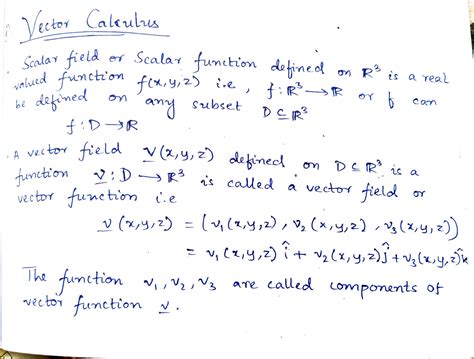 Vector Calculus
Scalar field or Scalar function defined on ℝ³ is a real
valued function f(x,y,z) i.e, f:ℝ³→ℝ or f can
be defined on any subset D⊆ℝ³
f:D→ℝ
. A vector field v̲(x,y,z) defined on D⊆ℝ³ is a
function v̲:D→ℝ³ is called a vector field or
vector function i.e
v̲(x,y,z) = (v₁(x,y,z), v₂(x,y,z), v₃(x,y,z))
= v₁(x,y,z) î + v₂(x,y,z) ĵ + v₃(x,y,z) k̂
The function v₁, v₂, v₃ are called components of
vector function v̲.